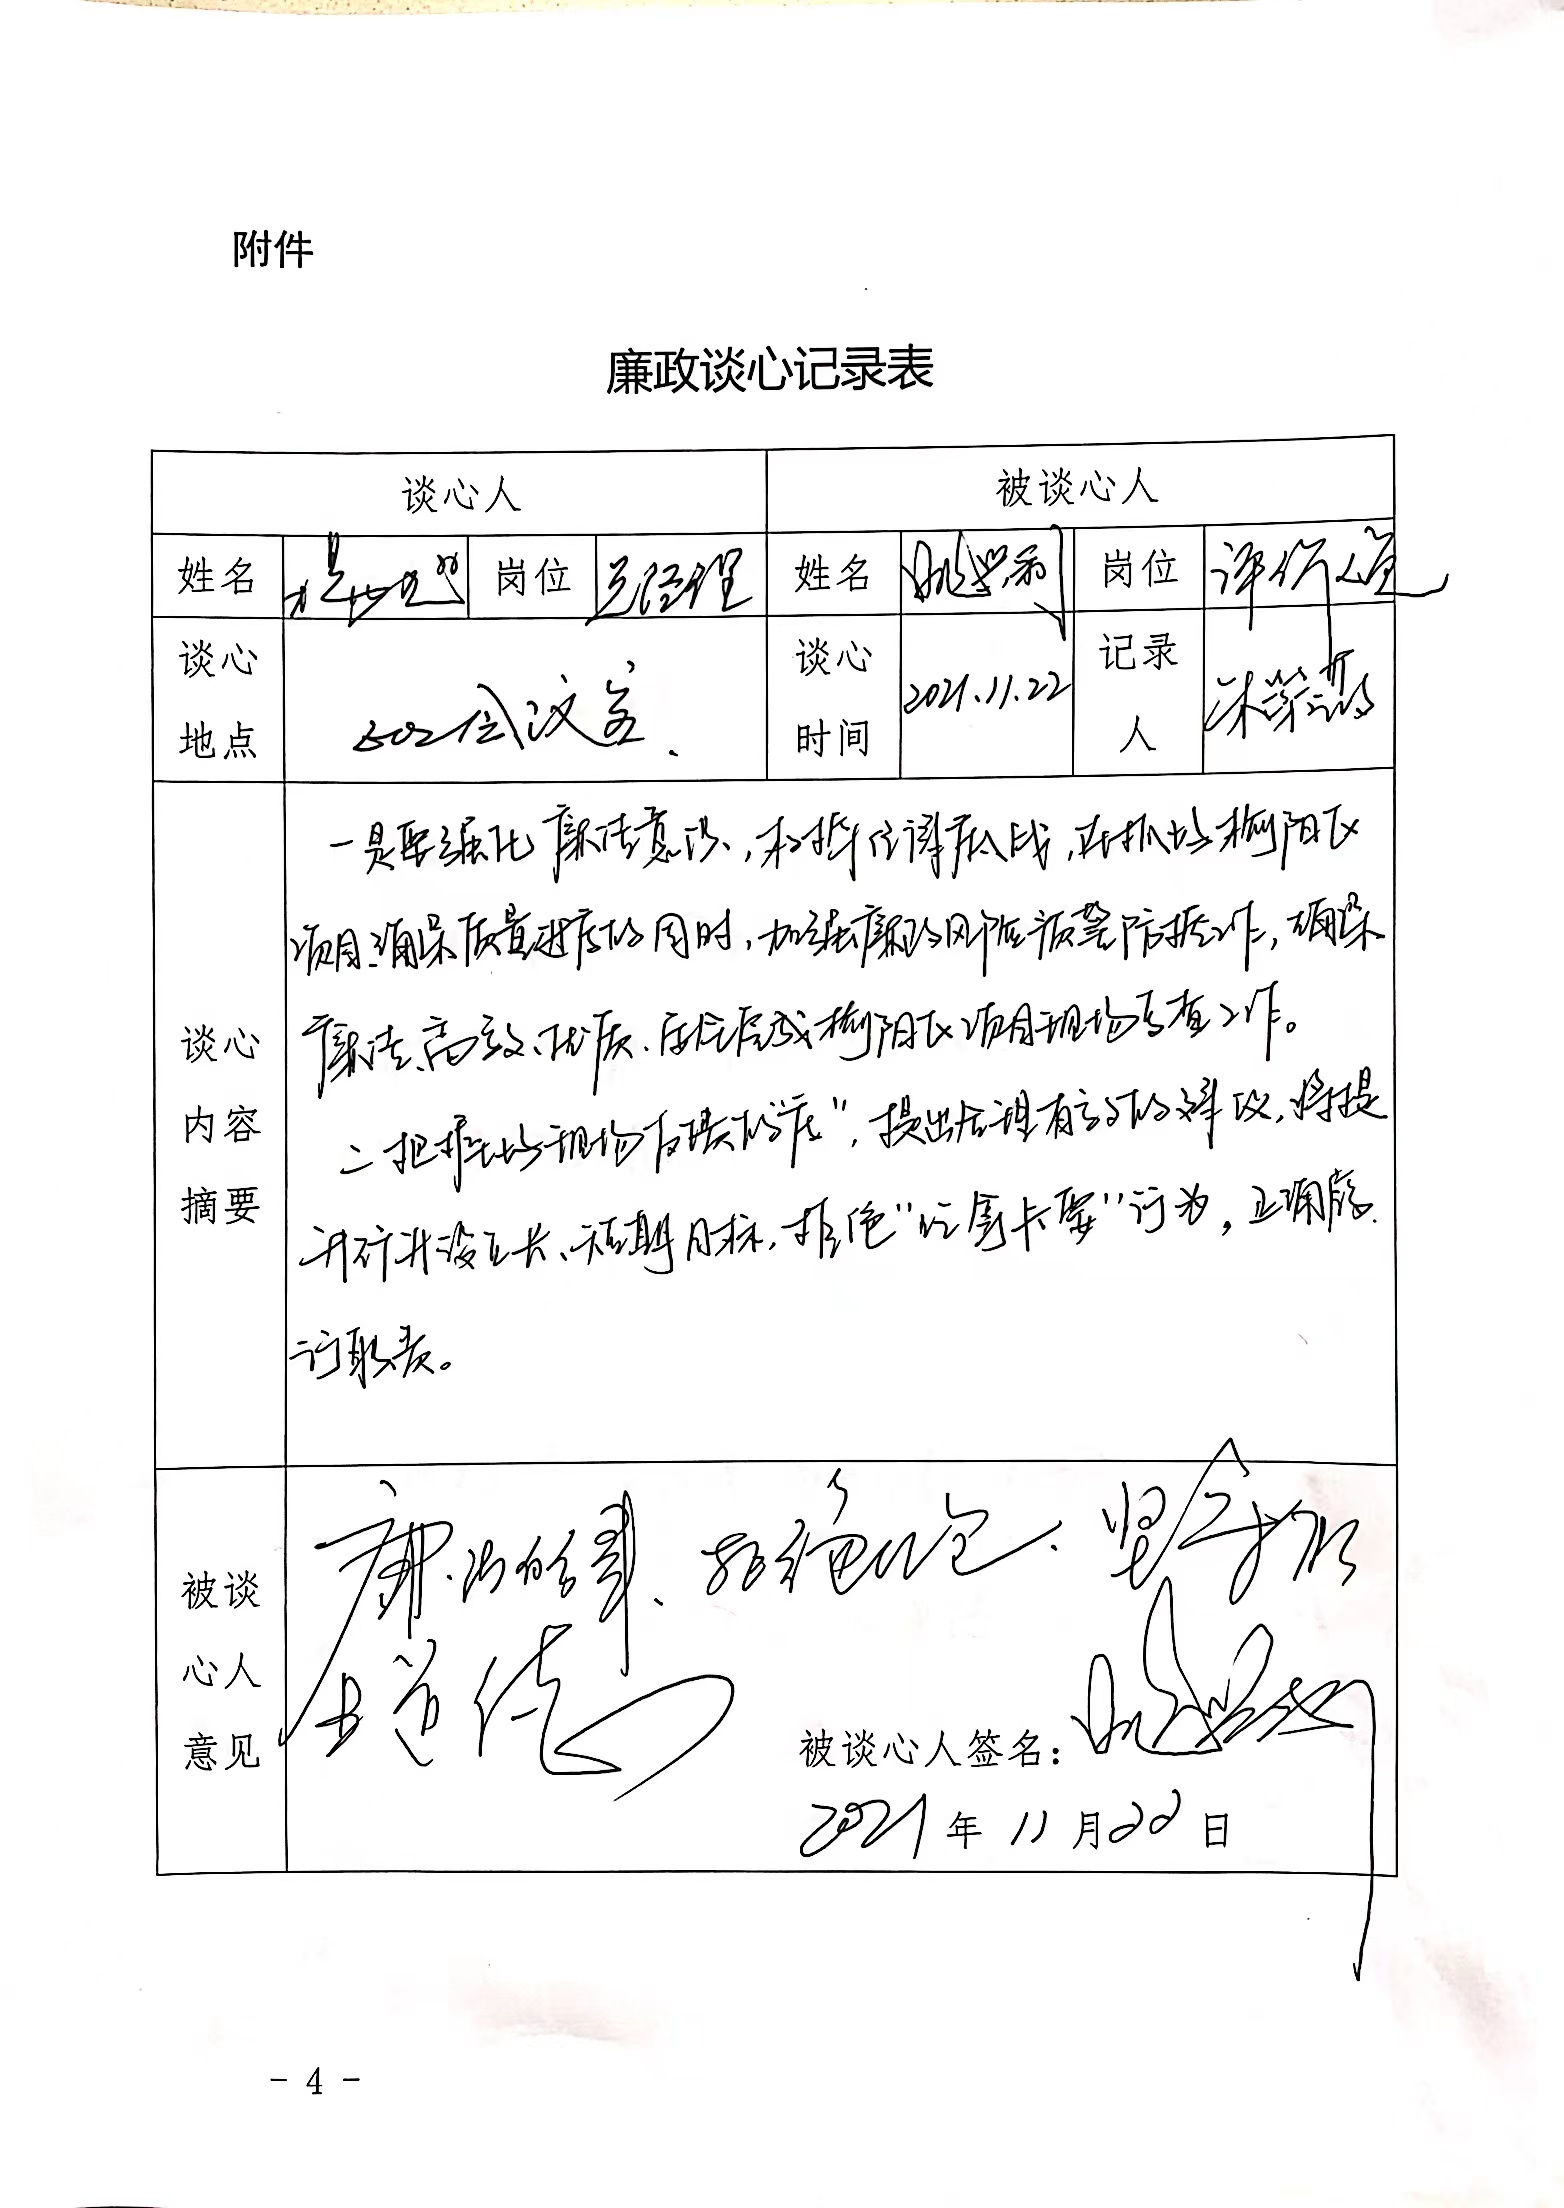 附件
廉政谈心记录表
谈心人 被谈心人
姓名 岗位 总经理 姓名 岗位 评价人员
谈心地点 会议室. 谈心时间 2021.11.22 记录人
谈心内容摘要
一是要强化廉洁意识,在抓好榆阳区
项目确保质量进度的同时,加强廉政风险预警防控工作,确保
廉洁、高效、优质、完成榆阳区项目现场考查工作。
二把握好现场反馈的“度”,提出合理有效的建议,将提
升设立长、短期目标,拒绝“吃拿卡要”行为,正确履
行职责。
被谈心人意见
廉洁自律、拒绝吃拿、坚守职
业道德
被谈心人签名:
2021年11月22日
- 4 -